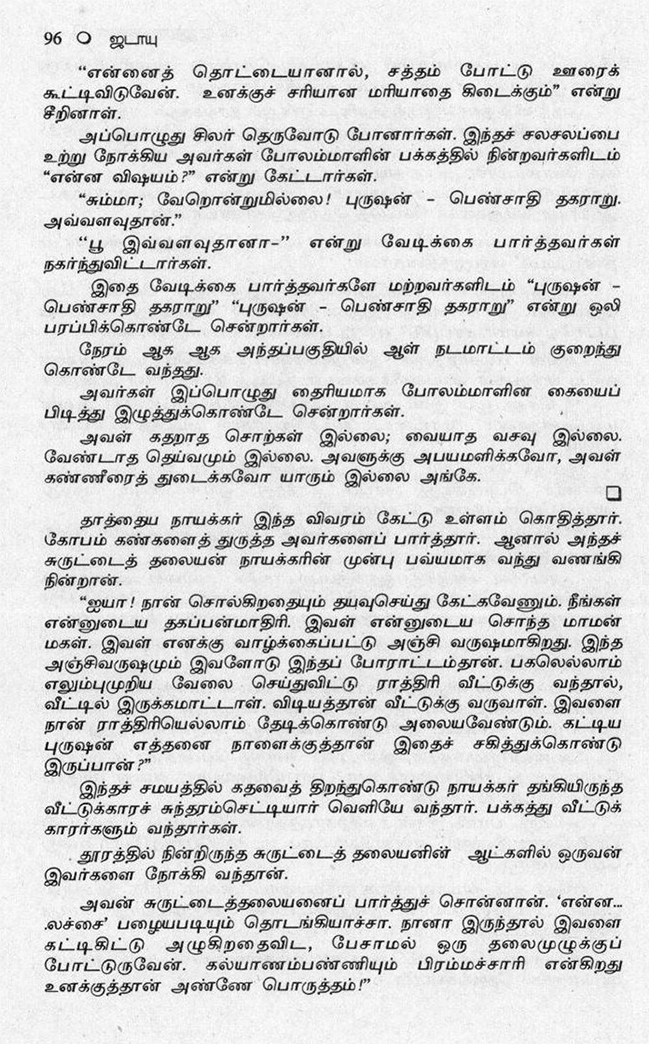 96 ❍ ஜடாயு
“என்னைத் தொட்டையானால், சத்தம் போட்டு ஊரைக்
கூட்டிவிடுவேன். உனக்குச் சரியான மரியாதை கிடைக்கும்” என்று
சீறினாள்.
அப்பொழுது சிலர் தெருவோடு போனார்கள். இந்தச் சலசலப்பை
உற்று நோக்கிய அவர்கள் போலம்மாளின் பக்கத்தில் நின்றவர்களிடம்
“என்ன விஷயம்?” என்று கேட்டார்கள்.
“சும்மா; வேறொன்றுமில்லை! புருஷன் – பெண்சாதி தகராறு.
அவ்வளவுதான்.”
“பூ இவ்வளவுதானா–” என்று வேடிக்கை பார்த்தவர்கள்
நகர்ந்துவிட்டார்கள்.
இதை வேடிக்கை பார்த்தவர்களே மற்றவர்களிடம் “புருஷன் –
பெண்சாதி தகராறு” “புருஷன் – பெண்சாதி தகராறு” என்று ஒலி
பரப்பிக்கொண்டே சென்றார்கள்.
நேரம் ஆக ஆக அந்தப்பகுதியில் ஆள் நடமாட்டம் குறைந்து
கொண்டே வந்தது.
அவர்கள் இப்பொழுது தைரியமாக போலம்மாளின கையைப்
பிடித்து இழுத்துக்கொண்டே சென்றார்கள்.
அவள் கதறாத சொற்கள் இல்லை; வையாத வசவு இல்லை.
வேண்டாத தெய்வமும் இல்லை. அவளுக்கு அபயமளிக்கவோ, அவள்
கண்ணீரைத் துடைக்கவோ யாரும் இல்லை அங்கே.
❏
தாத்தைய நாயக்கர் இந்த விவரம் கேட்டு உள்ளம் கொதித்தார்.
கோபம் கண்களைத் துருத்த அவர்களைப் பார்த்தார். ஆனால் அந்தச்
சுருட்டைத் தலையன் நாயக்கரின் முன்பு பவ்யமாக வந்து வணங்கி
நின்றான்.
“ஐயா! நான் சொல்கிறதையும் தயவுசெய்து கேட்கவேணும். நீங்கள்
என்னுடைய தகப்பன்மாதிரி. இவள் என்னுடைய சொந்த மாமன்
மகள். இவள் எனக்கு வாழ்க்கைப்பட்டு அஞ்சி வருஷமாகிறது. இந்த
அஞ்சிவருஷமும் இவளோடு இந்தப் போராட்டம்தான். பகலெல்லாம்
எலும்புமுறிய வேலை செய்துவிட்டு ராத்திரி வீட்டுக்கு வந்தால்,
வீட்டில் இருக்கமாட்டாள். விடியத்தான் வீட்டுக்கு வருவாள். இவளை
நான் ராத்திரியெல்லாம் தேடிக்கொண்டு அலையவேண்டும். கட்டிய
புருஷன் எத்தனை நாளைக்குத்தான் இதைச் சகித்துக்கொண்டு
இருப்பான்?”
இந்தச் சமயத்தில் கதவைத் திறந்துகொண்டு நாயக்கர் தங்கியிருந்த
வீட்டுக்காரச் சுந்தரம்செட்டியார் வெளியே வந்தார். பக்கத்து வீட்டுக்
காரர்களும் வந்தார்கள்.
தூரத்தில் நின்றிருந்த சுருட்டைத் தலையனின் ஆட்களில் ஒருவன்
இவர்களை நோக்கி வந்தான்.
அவன் சுருட்டைத்தலையனைப் பார்த்துச் சொன்னான். ‘என்ன...
.லச்சை’ பழையபடியும் தொடங்கியாச்சா. நானா இருந்தால் இவளை
கட்டிகிட்டு அழுகிறதைவிட, பேசாமல் ஒரு தலைமுழுக்குப்
போட்டுருவேன். கல்யாணம்பண்ணியும் பிரம்மச்சாரி என்கிறது
உனக்குத்தான் அண்ணே பொருத்தம்!”